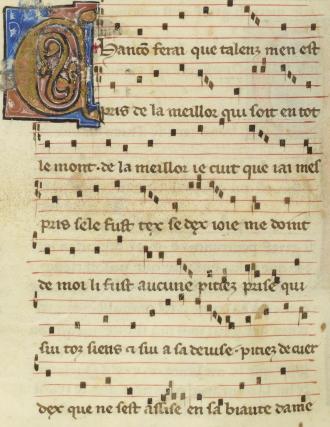 Chancō ferai que talenz men est
pris de la meillor qui soit en tot
le mont. de la meillor ie cuit que iai mes
pris sele fust tex se dex ioie me doint
de moi li fust aucune pitiez prise qui
sui toz siens ⁊ sui a sa deuise. pitiez de cuer
dex que ne sest assise en sa biaute dame